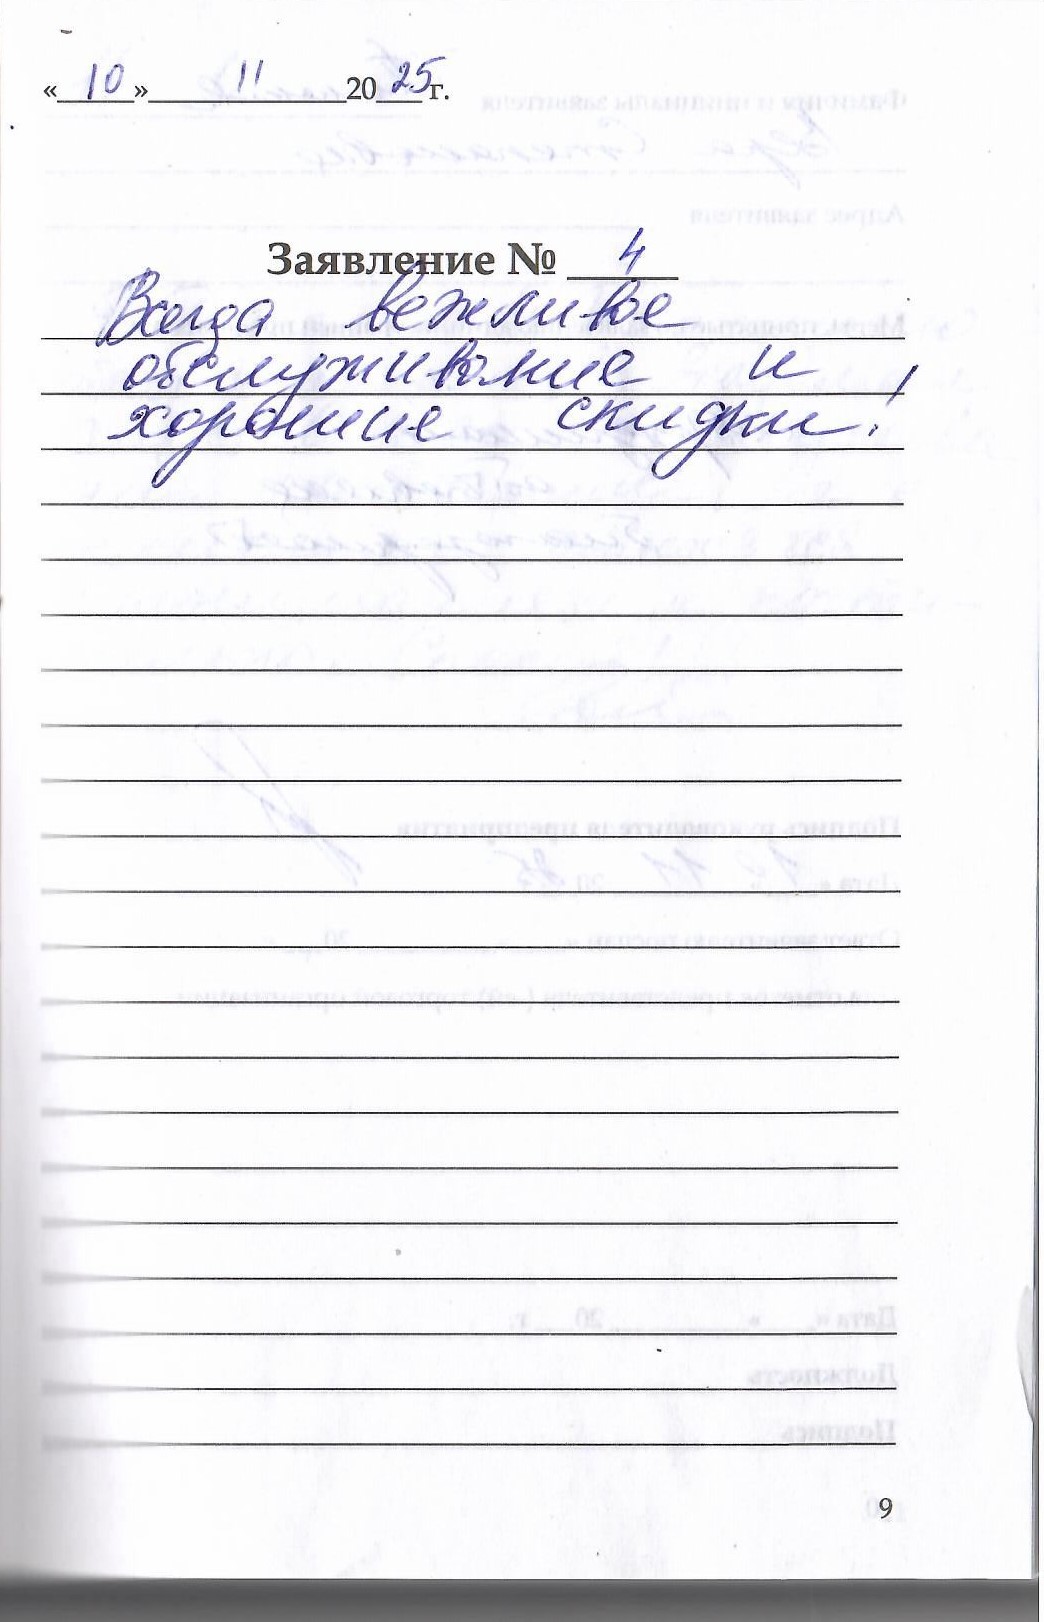 «10» 11 2025 г.
Заявление № 4
Всегда вежливое
обслуживание и
хорошие скидки!
9